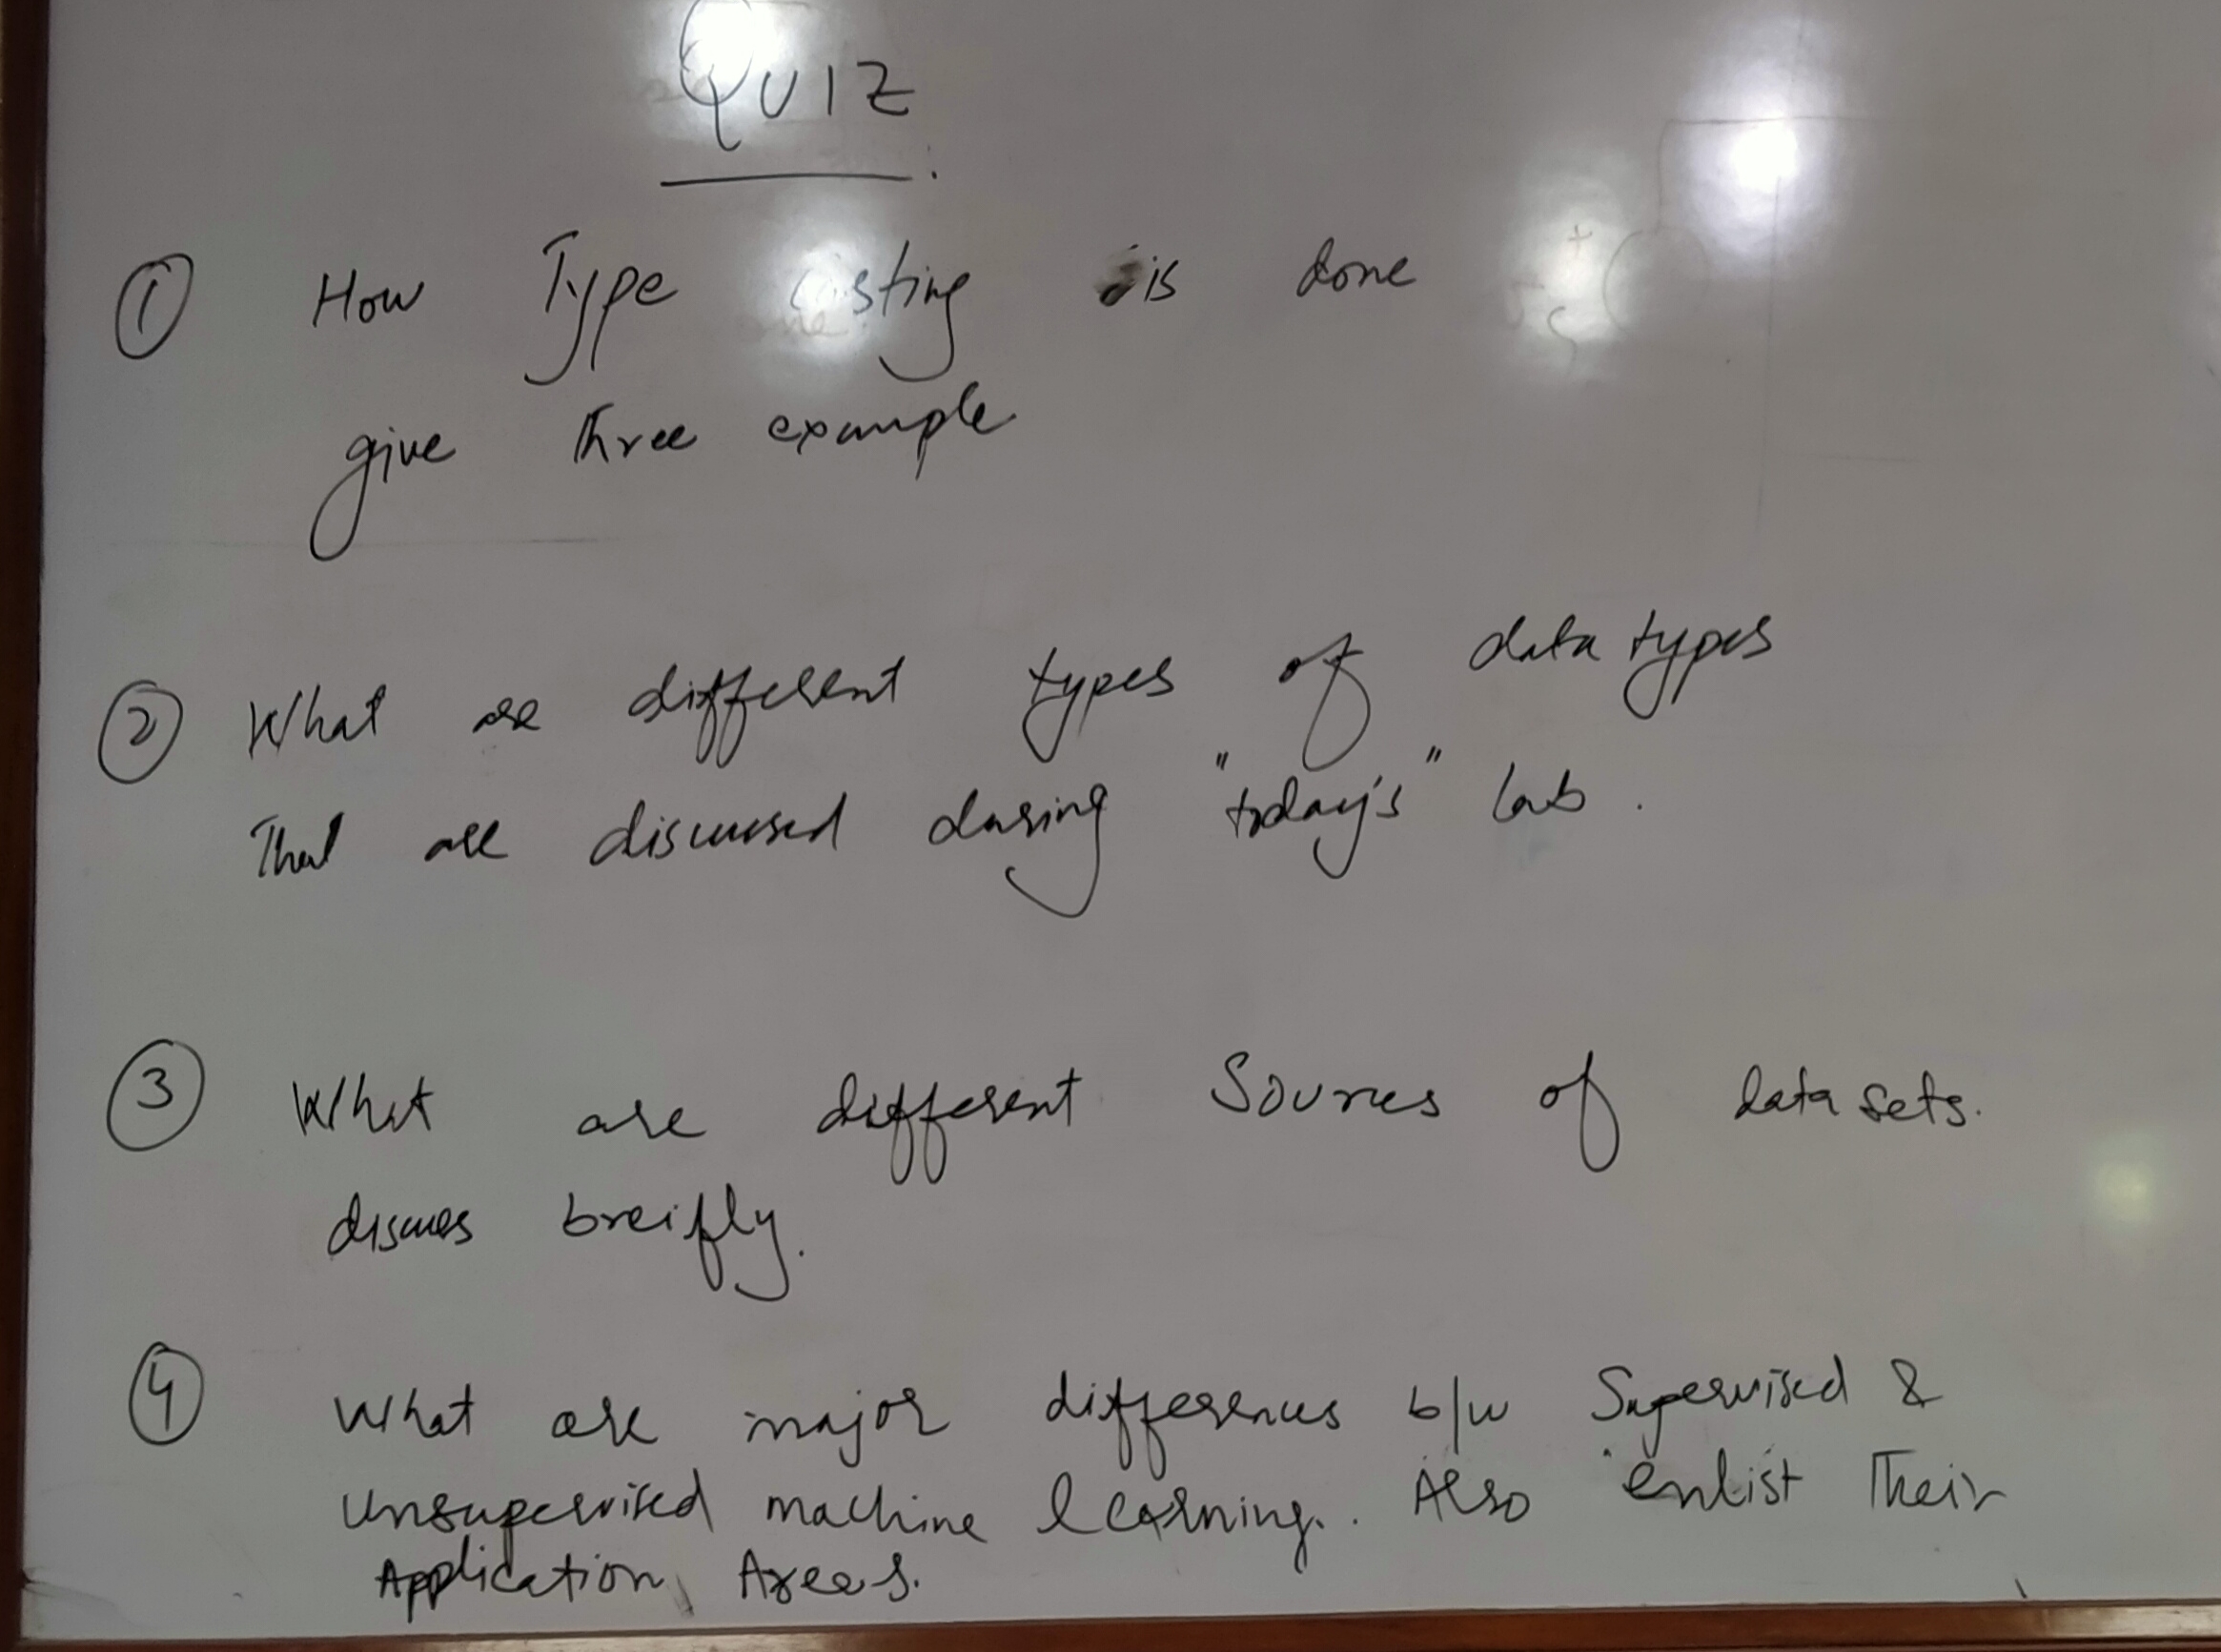 QUIZ
① How Type casting is done
give three example
② What are different types of data types
That are discussed during "today's" lab.
③ What are different Sources of data sets.
discuss breifly.
④ What are major differences b/w Supervised &
Unsupervised machine learning. Also enlist Their
Application Areas.